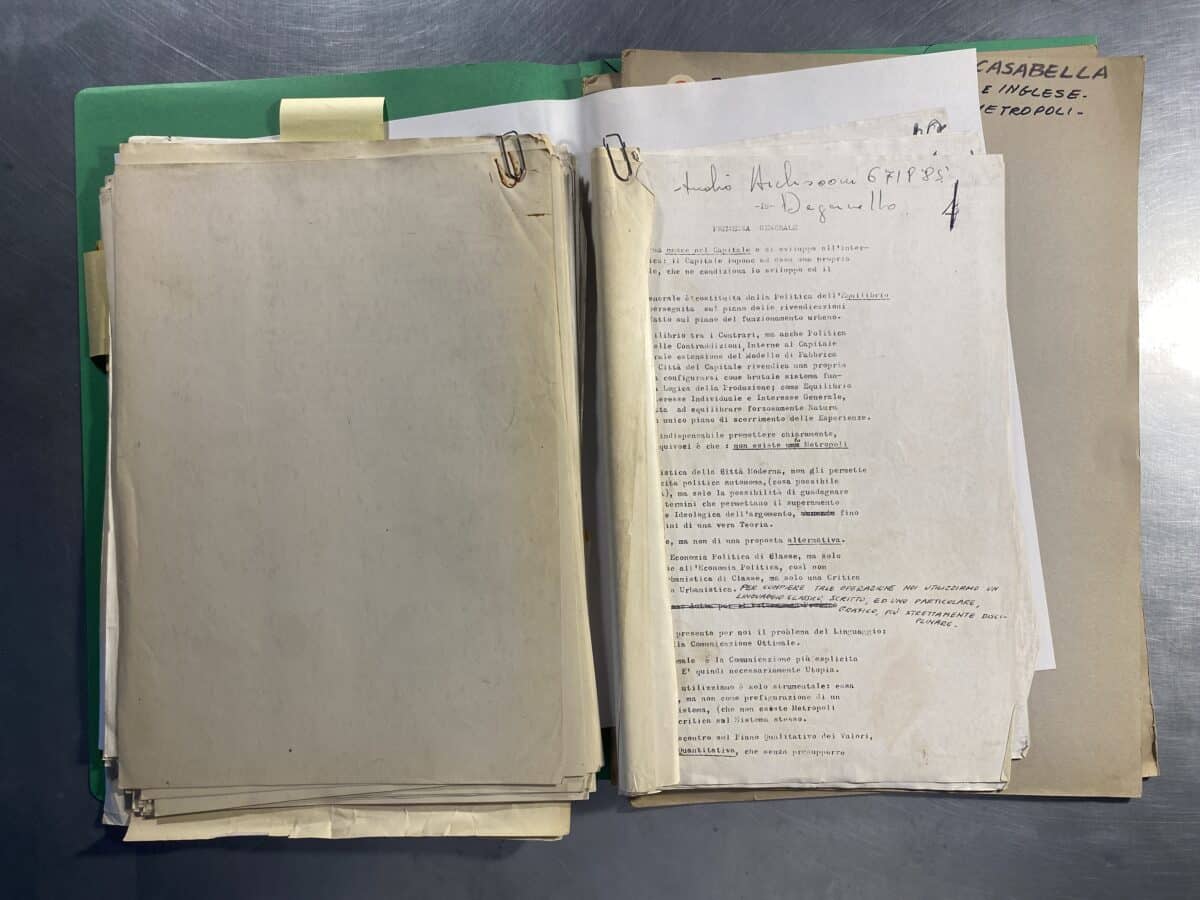 CASABELLA
E INGLESE.
METROPOLI.
Archizoom 671985
Deganello
4
PREMESSA GENERALE
nasce nel Capitale e si sviluppa all'inter-
il Capitale impone ad essa una propria
che ne condiziona lo sviluppo ed il
enerale è costituita dalla Politica dell'Equilibrio
perseguita sul piano delle rivendicazioni
fatto sul piano del funzionamento urbano.
ilibrio tra i Contrari, ma anche Politica
elle Contraddizioni Interne al Capitale
rale estensione del Modello di Fabbrica
Città del Capitale rivendica una propria
configurarsi come brutale sistema fun-
Logica della Produzione; come Equilibrio
eresse Individuale e Interesse Generale,
ta ad equilibrare forzosamente Natura
unico piano di scorrimento delle Esperienze.
indispensabile premettere chiaramente,
quivoci è che : non esiste la Metropoli
istica della Città Moderna, non gli permette
cita politica autonoma,(cosa possibile
), ma solo la possibilità di guadagnare
termini che permettano il superamento
e Ideologica dell'argomento, fino
ini di una vera Teoria.
, ma non di una proposta alternativa.
Economia Politica di Classe, ma solo
all'Economia Politica, così non
rbanistica di Classe, ma solo una Critica
Urbanistica. PER COMPIERE TALE OPERAZIONE NOI UTILIZZIAMO UN
LINGUAGGIO CLASSICO, SCRITTO, ED UNO PARTICOLARE,
GRAFICO, PIÙ STRETTAMENTE DISCI-
PLINARE.
presenta per noi il problema del Linguaggio:
lla Comunicazione Ottimale.
male è la Comunicazione più esplicita
E' quindi necessariamente Utopia.
utilizziamo è solo strumentale: essa
, ma non come prefigurazione di un
istema, (che non esiste Metropoli
critica sul Sistema stesso.
scontro sul Piano Qualitativo dei Valori,
Quantitativo, che senza presupporre